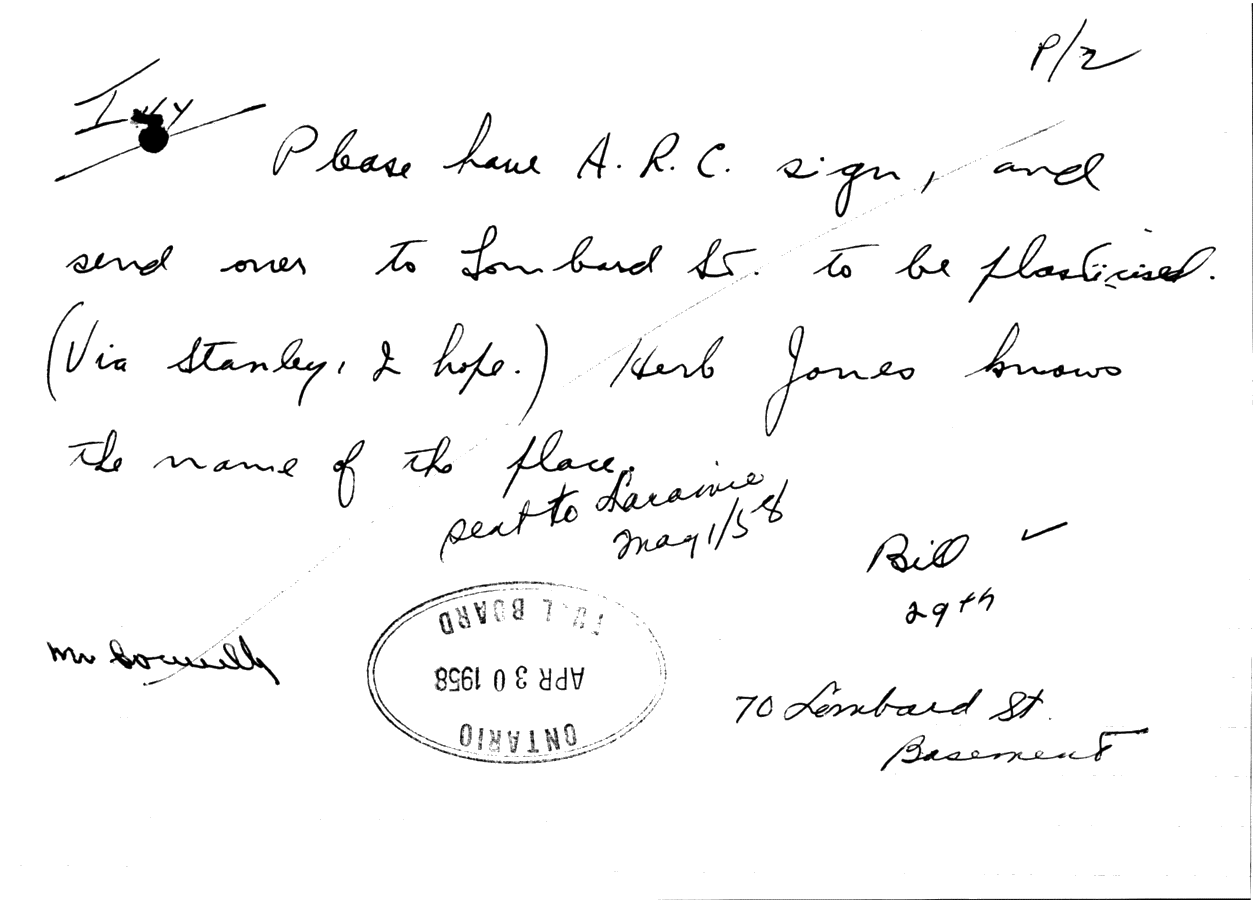 P/2
Please have A. R. C. sign, and
send over to Lombard St. to be plasticised.
(Via Stanley, I hope.) Herb Jones knows
the name of the place.
sent to Laraine
May 1/58
Bill ✓
29th
Mr
ONTARIO
APR 30 1958
BOARD
70 Lombard St.
Basement